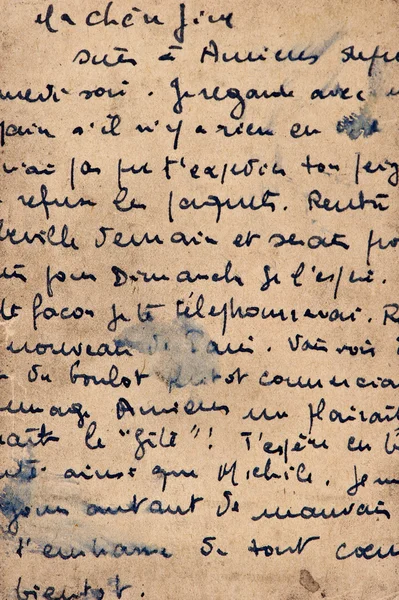 Ma chère Jim
suis à Amiens depu
medi soir. Je regarde avec
pain s'il n'y a rien en
n'ai pas pu t'expédier ton peig
refuse les paquets. Rentre
beville demain et serais
pour Dimanche je l'espère.
te façon je te téléphonerai. R
nouveau de Paris.
du boulot plutôt commercia
mage Amiens me plairait
le "gîte"! T'espère en b
ainsi que Michèle. Je
autant de mauvais
t'embrasse de tout coeu
bientôt.